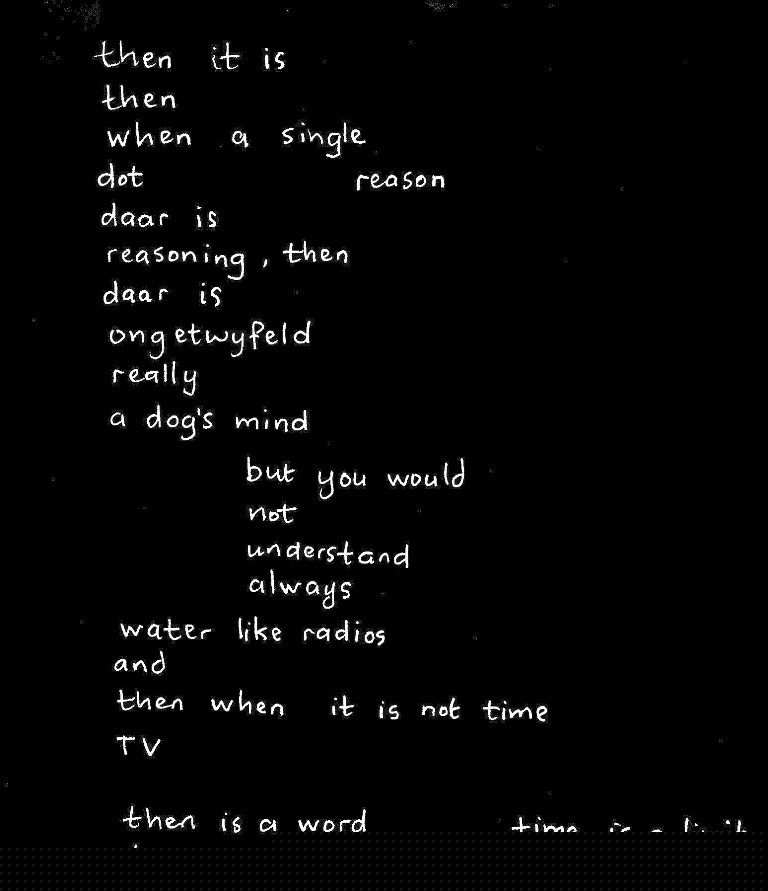 then it is
then
when a single
dot reason
daar is
reasoning, then
daar is
ongetwyfeld
really
a dog's mind
but you would
not
understand
always
water like radios
and
then when it is not time
TV
then is a word time is a